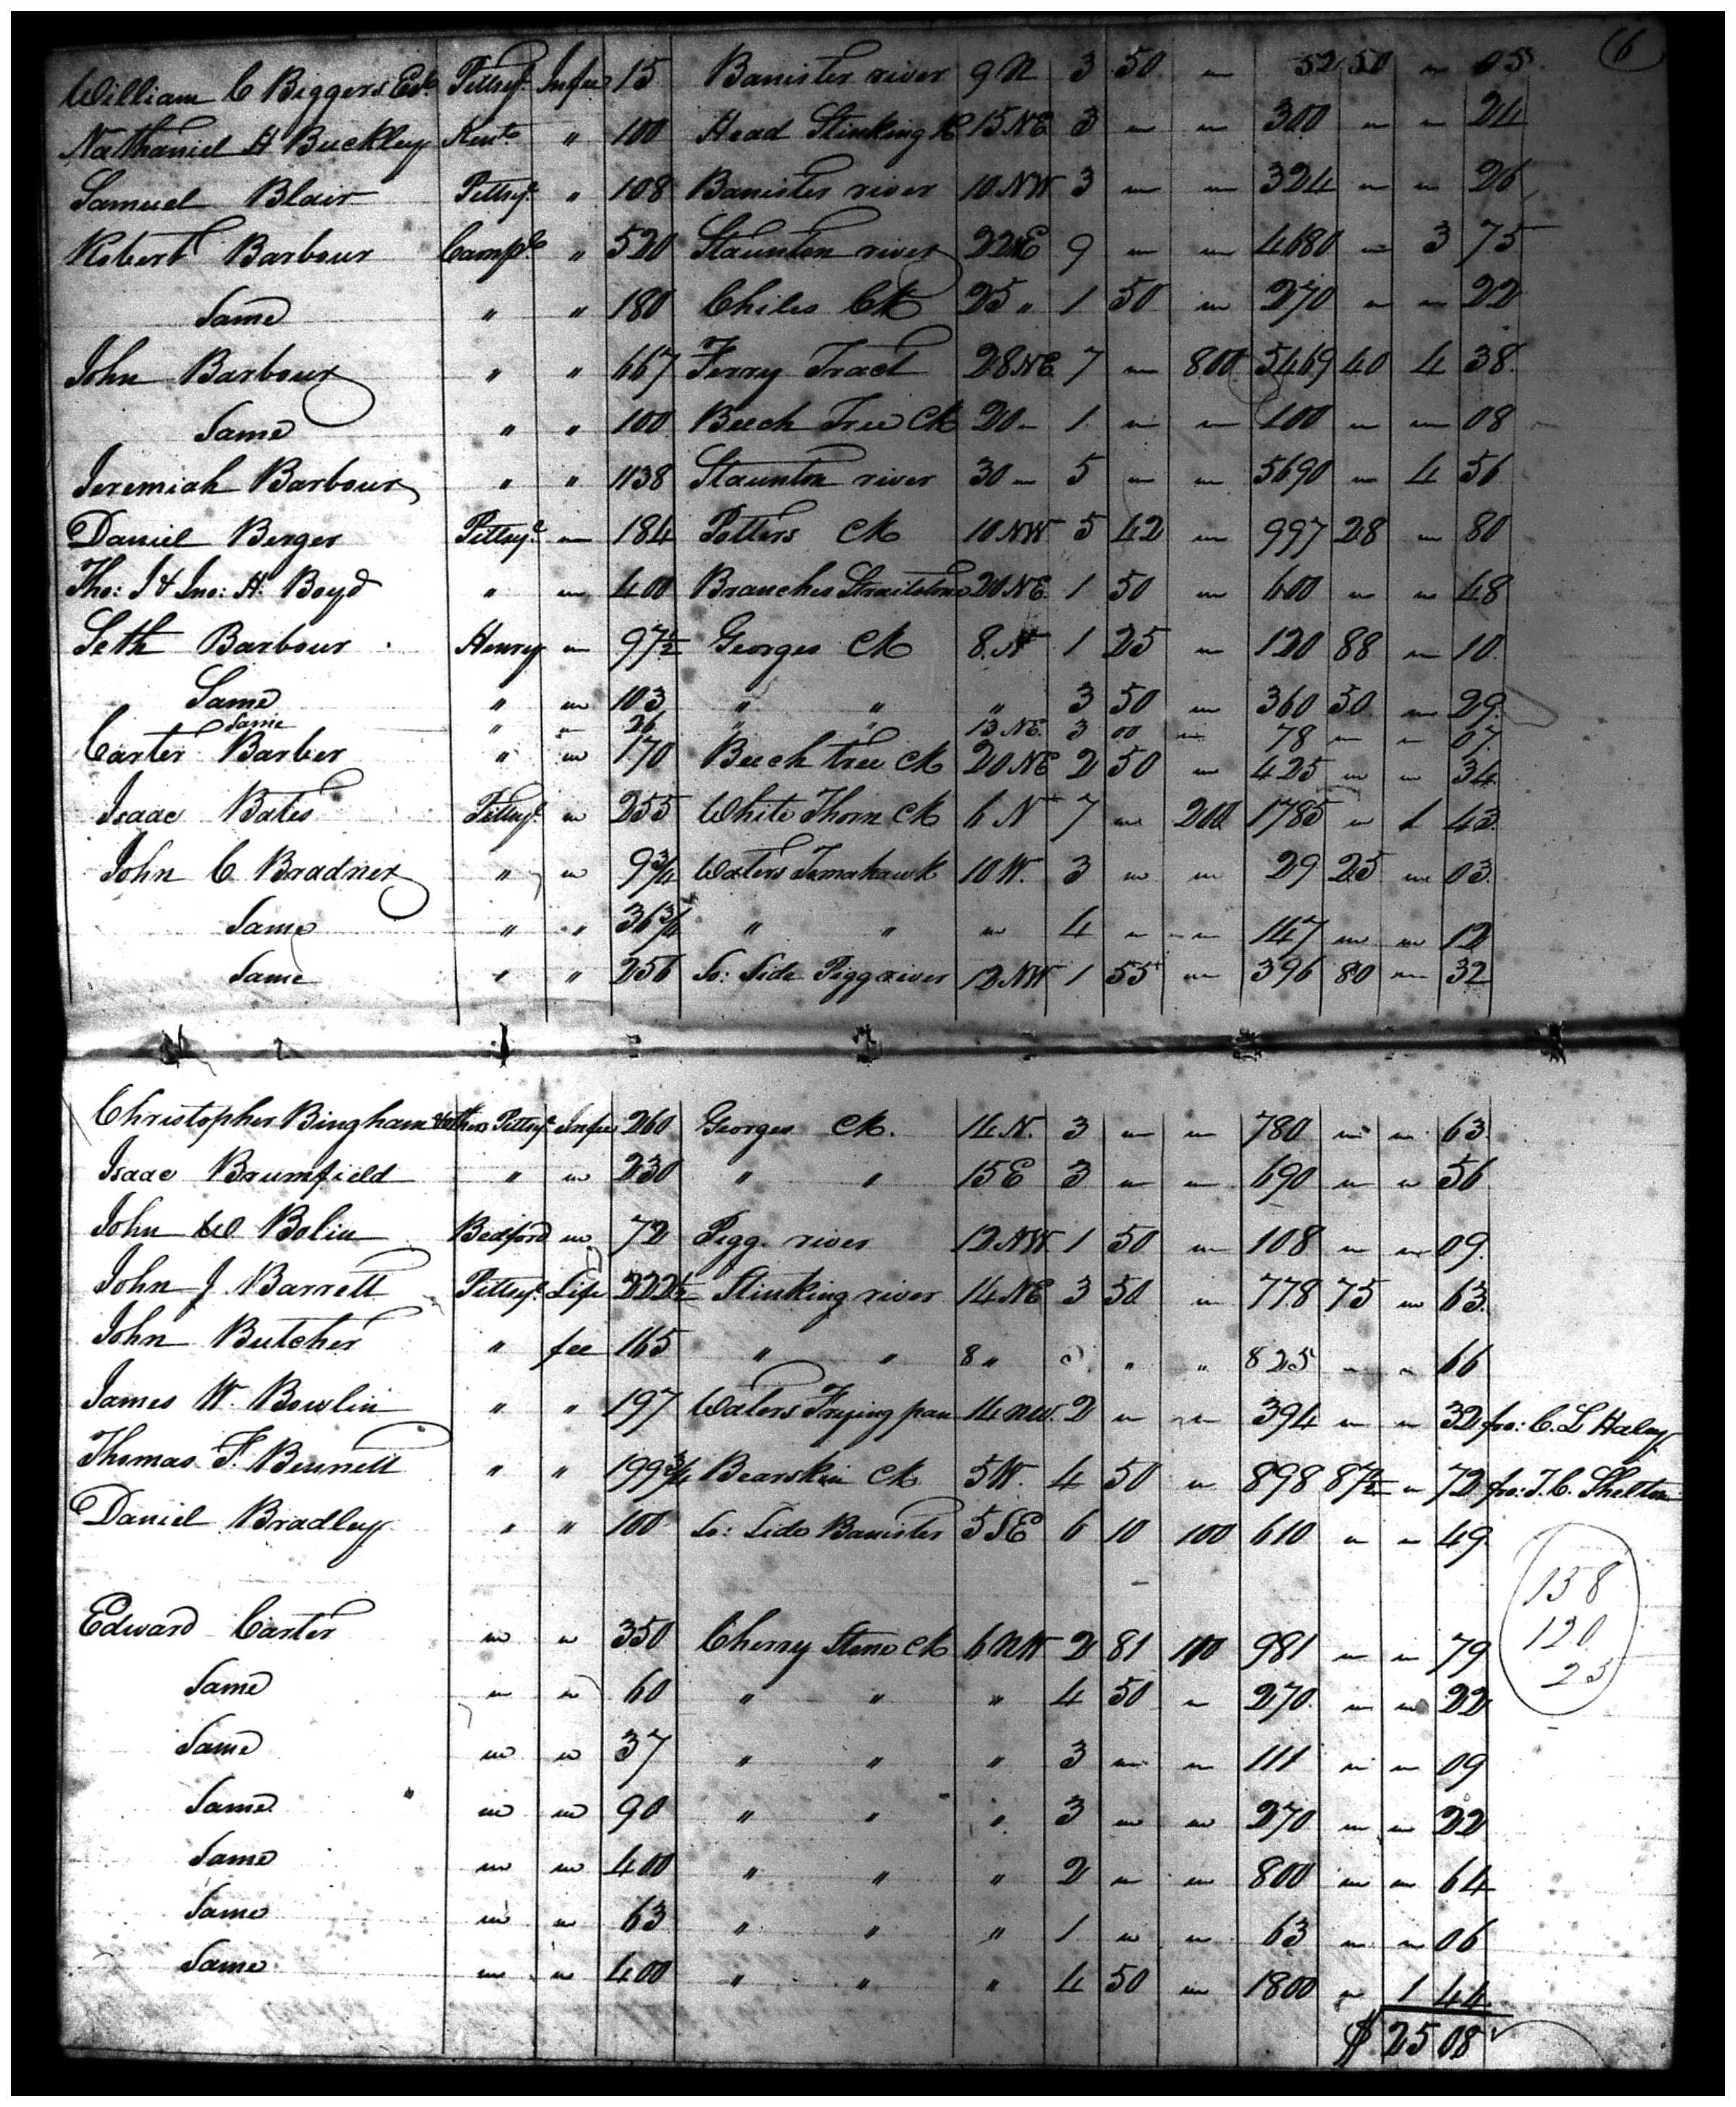 (6
William C Biggers Est. Pittsy.a In fee 15 Banister river 9 N 3 50 " 52 50 " 05
Nathaniel H Buckley Kent.o " 100 Head Stinking R 15 NE 3 " " 300 " " 24
Samuel Blair Pittsy.a " 108 Banister river 10 NW 3 " " 324 " " 26
Robert Barbour Camp.l " 520 Staunton river 22 NE 9 " " 4680 " 3 75
Same " " 180 Chiles Ck 25 " 1 50 " 270 " " 22
John Barbour " " 667 Ferry Tract 28 NE 7 " 800 5469 40 4 38
Same " " 100 Beech Tree Ck 20 " 1 " " 100 " " 08
Jeremiah Barbour " " 1138 Staunton river 30 " 5 " " 5690 " 4 56
Daniel Berger Pittsy.a " 184 Potters Ck 10 NW 5 42 " 997 28 " 80
Tho: J & Jno: H. Boyd " " 400 Branches Straitstone 20 NE 1 50 " 600 " " 48
Seth Barbour Henry " 97½ Georges Ck 8 N 1 25 " 120 88 " 10
Same " " 103 " " " 3 50 " 360 50 " 29
Same " " 26 " " 13 NE 3 00 " 78 " " 07
Carter Barber " " 170 Beech tree Ck 20 NE 2 50 " 425 " " 34
Isaac Bates Pittsy.a " 255 White Thorn Ck 6 N 7 " 200 1785 " 1 43
John C Bradner " " 9¾ Waters Tomahawk 10 W. 3 " " 29 25 " 03
Same " " 36¾ " " " 4 " " 147 " " 12
Same " " 256 So: Side Pigg river 12 NW 1 55 " 396 80 " 32
Christopher Bingham & others Pittsy.a In fee 260 Georges Ck. 14 N. 3 " " 780 " " 63
Isaac Brumfield " " 230 " " 15 E 3 " " 690 " " 56
John W Bolin Bedford " 72 Pigg river 12 NW 1 50 " 108 " " 09
John J Barrett Pittsy.a Life 222½ Stinking river 14 NE 3 50 " 778 75 " 63
John Butcher " fee 165 " " 8 " 5 " " 825 " " 66
James W. Bowlin " " 197 Waters Frying pan 14 NW. 2 " " 394 " " 32 fro: C. L Haley
Thomas F. Bennett " " 199¾ Bearskin Ck 5 W. 4 50 " 898 87½ " 72 fro: T. C. Shelton
Daniel Bradley " " 100 So: Side Banister 5 SE 6 10 100 610 " " 49
158
120
25
Edward Carter " " 350 Cherry Stone Ck 6 NW 2 81 100 981 " " 79
Same " " 60 " " " 4 50 " 270 " " 22
Same " " 37 " " " 3 " " 111 " " 09
Same " " 90 " " " 3 " " 270 " " 22
Same " " 400 " " " 2 " " 800 " " 64
Same " " 63 " " " 1 " " 63 " " 06
Same " " 400 " " " 4 50 " 1800 " 1 44
$ 25 08